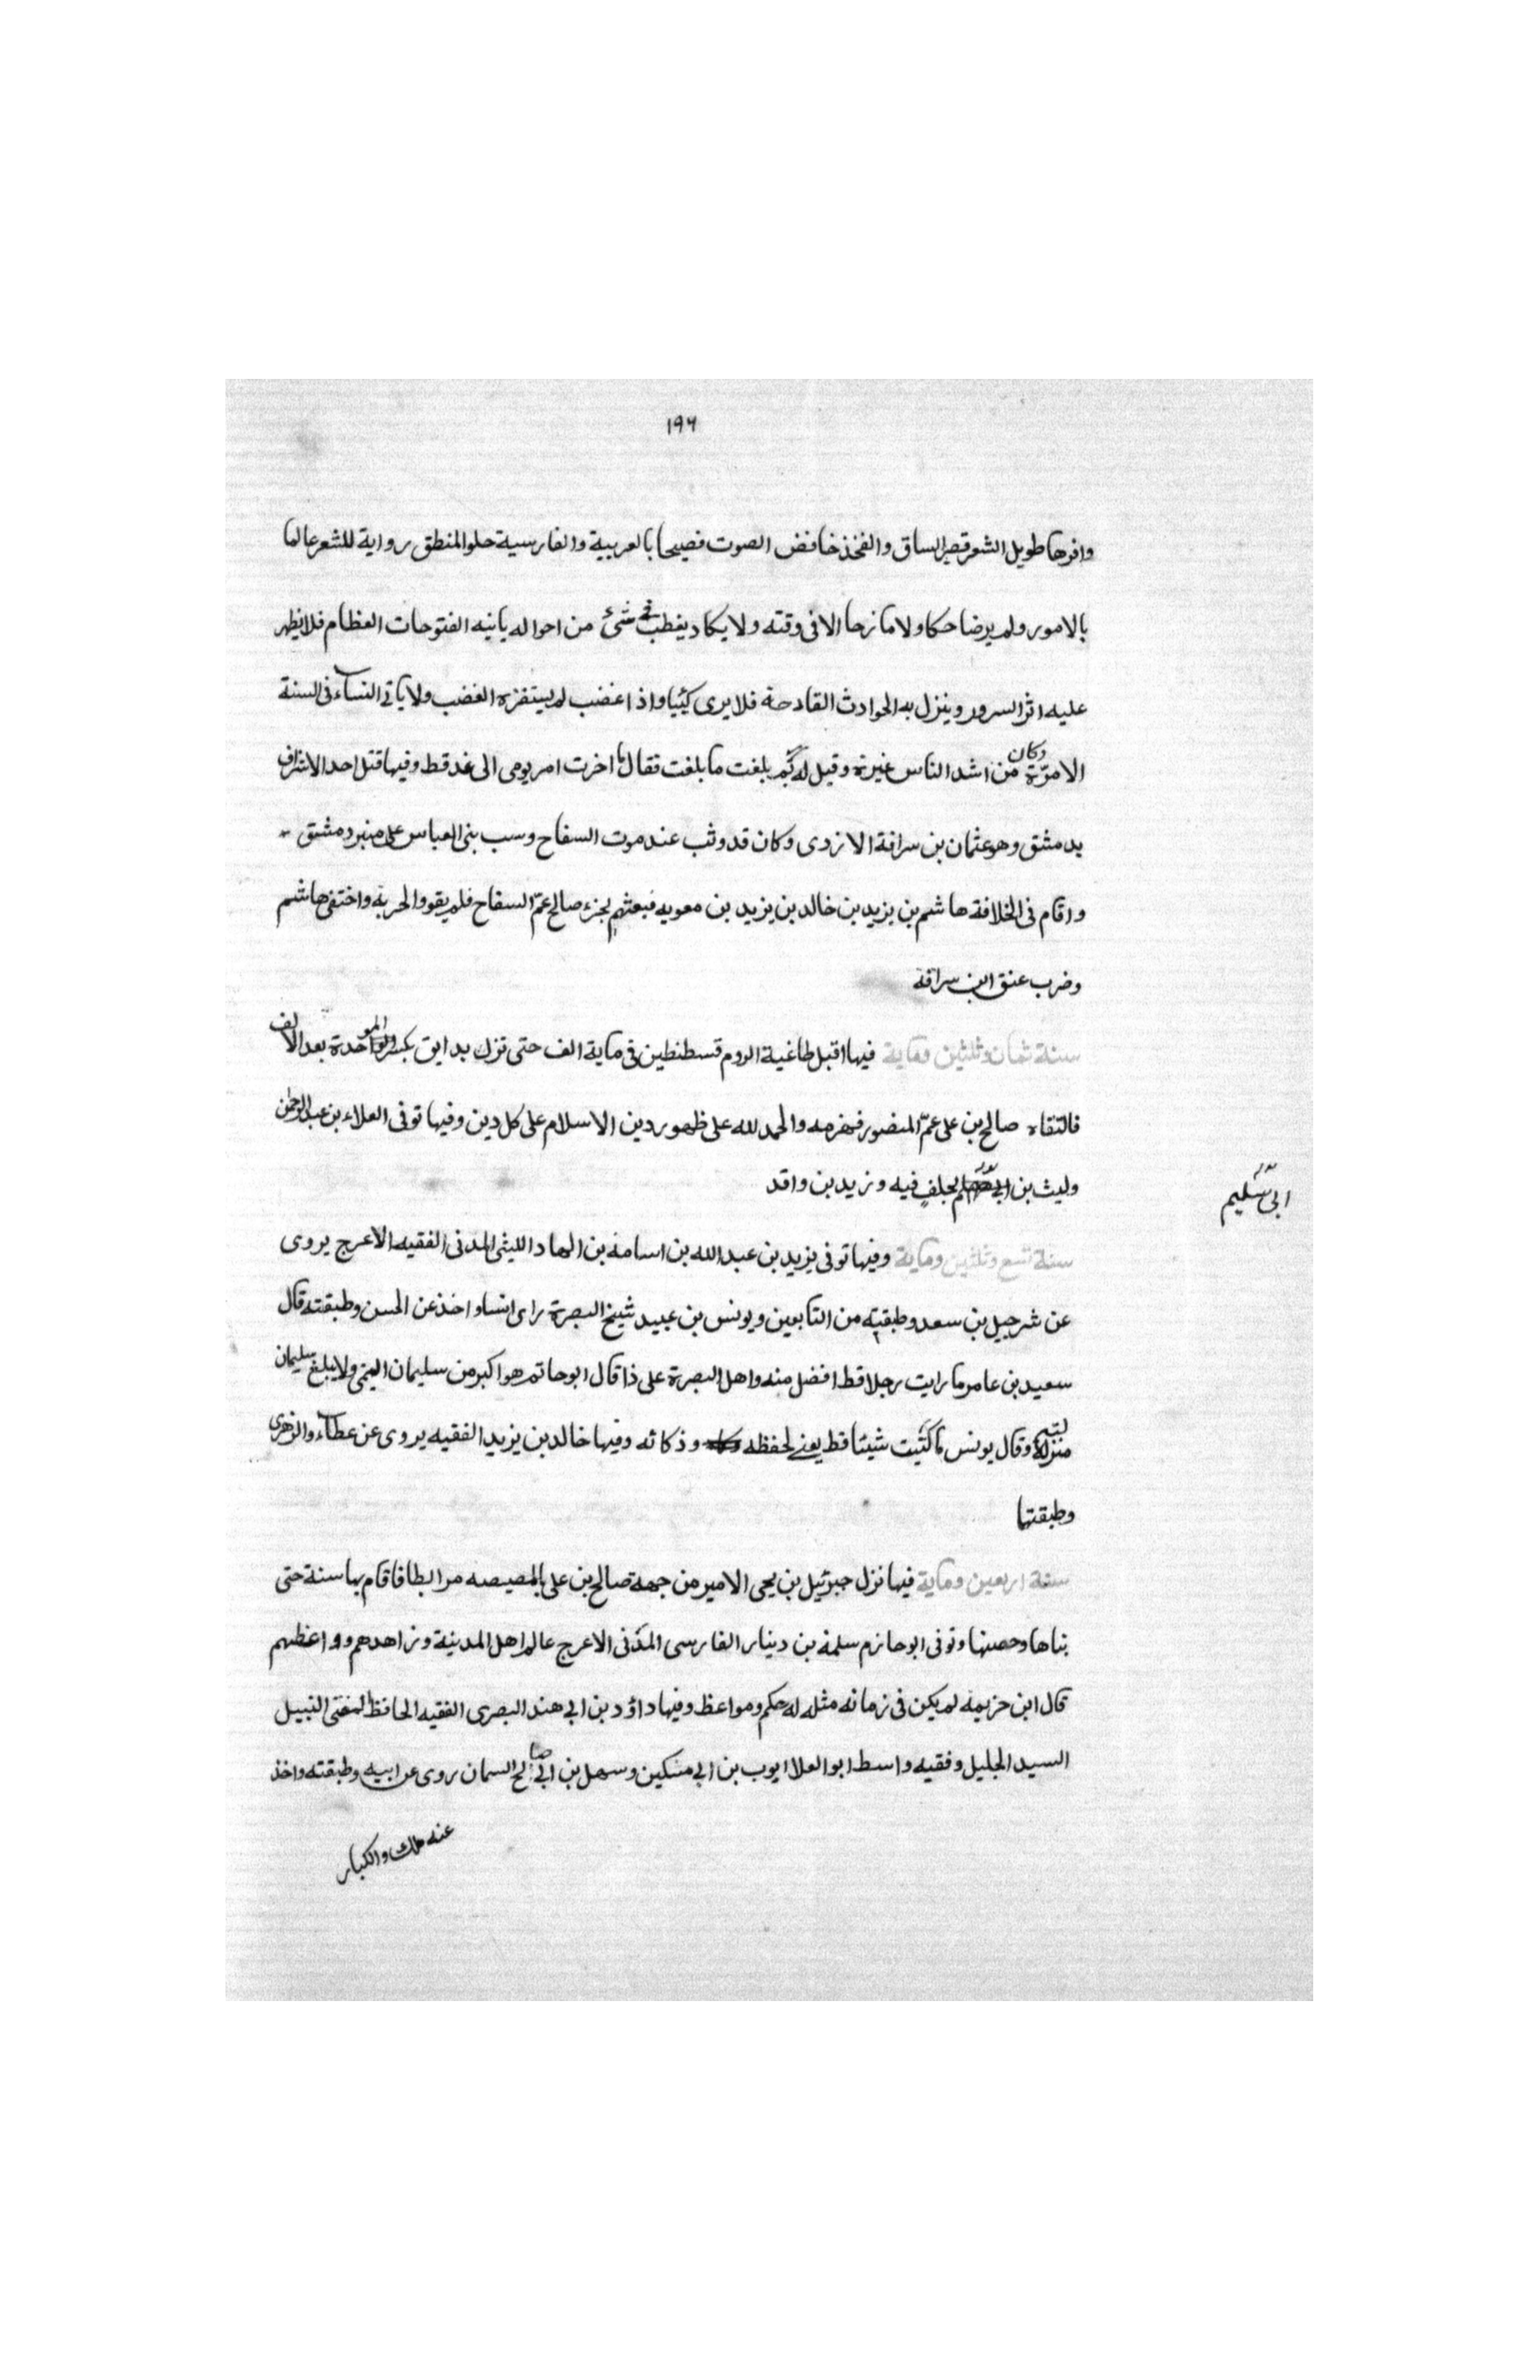 ١٩٦
وافرها طويل الشعر قصير الساق والفخذ خافض الصوت فصيحا بالعربية والفارسية حلو المنطق رواية للشعر عالما
بالامور ولم ير ضاحكا ولا مازحا الا في وقته ولا يكاد يغطب في شئ من احواله ياتيه الفتوحات العظام فلا يظهر
عليه اثر السرور وينزل به الحوادث القادحة فلا يرى كئيبا واذا غضب لم يستفزه الغضب ولا ياتي النساء في السنة
الا مرّة وكان من اشد الناس غيرة وقيل له بم بلغت ما بلغت فقال ما اخرت امر يومى الى غد قط وفيها قتل احد الاشراف
بدمشق وهو عثمان بن سراقة الازدى وكان قد وثب عند موت السفاح وسب بنى العباس على منبر دمشق
واقام في الخلافة هاشم بن يزيد بن خالد بن يزيد بن معويه فبعثهم لجزء صالح عمّ السفاح فلم يقووا لحربه واختفى هاشم
وضرب عنق ابن سراقة
سنة ثمان وثلثين وماية فيها اقبل طاغية الروم قسطنطين في ماية الف حتى نزل بدابق بكسر الموحدة بعد الالف
فالتقاه صالح بن على عمّ المنصور فهزمه والحمد لله على ظهور دين الاسلام على كل دين وفيها توفى العلاء بن عبد الرحمن
وليث بن فيه وزيد بن واقد
ابى سُليم
سنة تسع وثلثين وماية وفيها توفى يزيد بن عبد الله بن اسامة بن الهاد الليثى المدنى الفقيه الاعرج يروى
عن شرحبيل بن سعد وطبقته من التابعين ويونس بن عبيد شيخ البصرة راى انسا واخذ عن الحسن وطبقته قال
سعيد بن عامر ما رايت رجلا قط افضل منه واهل البصرة على ذا قال ابو حاتم هو اكبر من سليمان التيمى ولا يبلغ سليمان
منزلته وقال يونس ما كتبت شيئا قط يعنى لحفظه وذكائه وفيها خالد بن يزيد الفقيه يروى عن عطاء والزهرى
وطبقتها
سنة اربعين وماية فيها نزل جبرئيل بن يحى الامير من جهة صالح بن على بالمصيصه مرابطا فاقام بها سنة حتى
بناها وحصنها وتوفى ابو حازم سلمة بن دينار الفارسى المدنى الاعرج عالم اهل المدينة وزاهدهم وواعظهم
قال ابن خزيمة لم يكن في زمانه مثله له حكم ومواعظ وفيها داؤد بن ابى هند البصرى الفقيه الحافظ المفتى النبيل
السيد الجليل وفقيه واسط ابو العلا ايوب بن ابى مسكين وسهل بن ابى صالح السمان روى عن ابيه وطبقته واخذ
عنه ملك والكبار